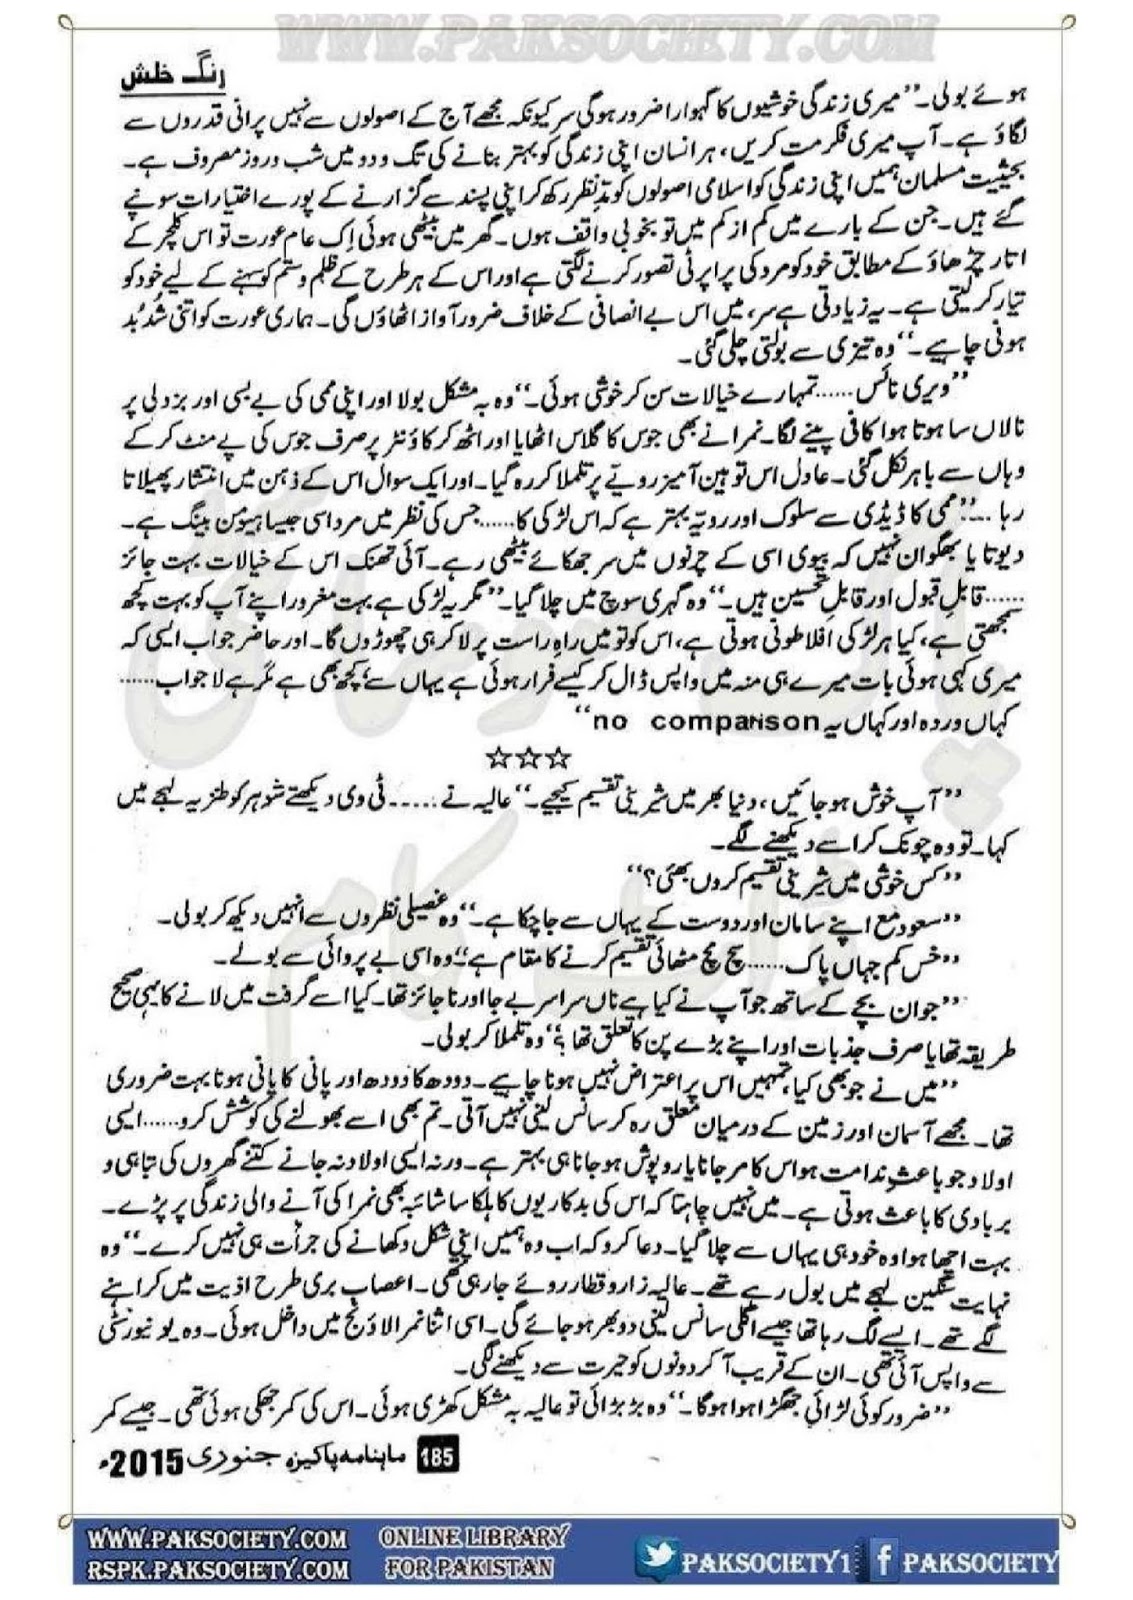 WWW.PAKSOCIETY.COM
رنگ خلش
ہوئے بولی۔ ”میری زندگی خوشیوں کا گہوارا ضرور ہوگی سر کیونکہ مجھے آج کے اصولوں سے نہیں پرانی قدروں سے
لگاؤ ہے۔ آپ میری فکر مت کریں، ہر انسان اپنی زندگی کو بہتر بنانے کی تگ و دو میں شب و روز مصروف ہے۔
بحیثیت مسلمان ہمیں اپنی زندگی کو اسلامی اصولوں کو مدِ نظر رکھ کر اپنی پسند سے گزارنے کے پورے اختیارات سونپے
گئے ہیں۔ جن کے بارے میں کم از کم میں تو بخوبی واقف ہوں۔ گھر میں بیٹھی ہوئی اِک عام عورت تو اس کلچر کے
اتار چڑھاؤ کے مطابق خود کو مرد کی پراپرٹی تصور کرنے لگتی ہے اور اس کے ہر طرح کے ظلم و ستم کو سہنے کے لیے خود کو
تیار کر لیتی ہے۔ یہ زیادتی ہے سر، میں اس بے انصافی کے خلاف ضرور آواز اٹھاؤں گی۔ ہماری عورت کو اتنی شُد بُد
ہونی چاہیے۔“ وہ تیزی سے بولتی چلی گئی۔
”ویری نائس...... تمہارے خیالات سن کر خوشی ہوئی۔“ وہ بہ مشکل بولا اور اپنی ممی کی بے بسی اور بزدلی پر
نالاں سا ہوتا ہوا کافی پینے لگا۔ نمرا نے بھی جوس کا گلاس اٹھایا اور اٹھ کر کاؤنٹر پر صرف جوس کی پے منٹ کر کے
وہاں سے باہر نکل گئی۔ عادل اس توہین آمیز رویے پر تلملا کر رہ گیا۔ اور ایک سوال اس کے ذہن میں انتشار پھیلاتا
رہا ...۔ ”ممی کا ڈیڈی سے سلوک اور رویہ بہتر ہے کہ اس لڑکی کا...... جس کی نظر میں مرد اسی جیسا ہیومن بینگ ہے۔
دیوتا یا بھگوان نہیں کہ بیوی اسی کے چرنوں میں سر جھکائے بیٹھی رہے۔ آئی تھنک اس کے خیالات بہت جائز
...... قابلِ قبول اور قابلِ تحسین ہیں۔“ وہ گہری سوچ میں چلا گیا۔ ”مگر یہ لڑکی ہے بہت مغرور اپنے آپ کو بہت کچھ
سمجھتی ہے، کیا ہر لڑکی افلاطونی ہوتی ہے، اس کو تو میں راہِ راست پر لا کر ہی چھوڑوں گا۔ اور حاضر جواب ایسی کہ
میری کہی ہوئی بات میرے ہی منہ میں واپس ڈال کر کیسے فرار ہوئی ہے یہاں سے، کچھ بھی ہے مگر ہے لاجواب......
کہاں وردہ اور کہاں یہ no comparison“
☆☆☆
”آپ خوش ہو جائیں، دنیا بھر میں شیرینی تقسیم کیجیے۔“ عالیہ نے ..... ٹی وی دیکھتے شوہر کو طنزیہ لہجے میں
کہا۔ تو وہ چونک کر اسے دیکھنے لگے۔
”کس خوشی میں شیرینی تقسیم کروں بھئی؟“
”سعود مع اپنے سامان اور دوست کے یہاں سے جا چکا ہے۔“ وہ غصیلی نظروں سے انہیں دیکھ کر بولی۔
”خس کم جہاں پاک...... سچ مچ مٹھائی تقسیم کرنے کا مقام ہے“ وہ اسی بے پروائی سے بولے۔
”جوان بچے کے ساتھ جو آپ نے کیا ہے ناں سراسر بے جا اور ناجائز تھا۔ کیا اسے گرفت میں لانے کا یہی صحیح
طریقہ تھا یا صرف جذبات اور اپنے بڑے پن کا تعلق تھا؟“ وہ تلملا کر بولی۔
”میں نے جو بھی کیا، تمہیں اس پر اعتراض نہیں ہونا چاہیے۔ دودھ کا دودھ اور پانی کا پانی ہونا بہت ضروری
تھا۔ مجھے آسمان اور زمین کے درمیان معلق رہ کر سانس لینی نہیں آتی۔ تم بھی اسے بھولنے کی کوشش کرو...... ایسی
اولاد جو باعثِ ندامت ہو اس کا مر جانا یا روپوش ہو جانا ہی بہتر ہے۔ ورنہ ایسی اولاد نہ جانے کتنے گھروں کی تباہی و
بربادی کا باعث ہوتی ہے۔ میں نہیں چاہتا کہ اس کی بدکاریوں کا ہلکا سا شائبہ بھی نمرا کی آنے والی زندگی پر پڑے۔
بہت اچھا ہوا وہ خود ہی یہاں سے چلا گیا۔ دعا کرو کہ اب وہ ہمیں اپنی شکل دکھانے کی جرأت ہی نہیں کرے۔“ وہ
نہایت سنگین لہجے میں بول رہے تھے۔ عالیہ زار و قطار روئے جا رہی تھی۔ اعصاب بری طرح اذیت میں کراہنے
لگے تھے۔ ایسے لگ رہا تھا جیسے اگلی سانس لینی دوبھر ہو جائے گی۔ اسی اثنا نمرا لاؤنج میں داخل ہوئی۔ وہ یونیورسٹی
سے واپس آئی تھی۔ ان کے قریب آ کر دونوں کو حیرت سے دیکھنے لگی۔
”ضرور کوئی لڑائی جھگڑا ہوا ہوگا۔“ وہ بڑبڑائی تو عالیہ بہ مشکل کھڑی ہوئی۔ اس کی کمر جھکی ہوئی تھی۔ جیسے کمر
185 ماہنامہ پاکیزہ جنوری 2015ء
WWW.PAKSOCIETY.COM ONLINE LIBRARY PAKSOCIETY1 PAKSOCIETY
RSPK.PAKSOCIETY.COM FOR PAKISTAN